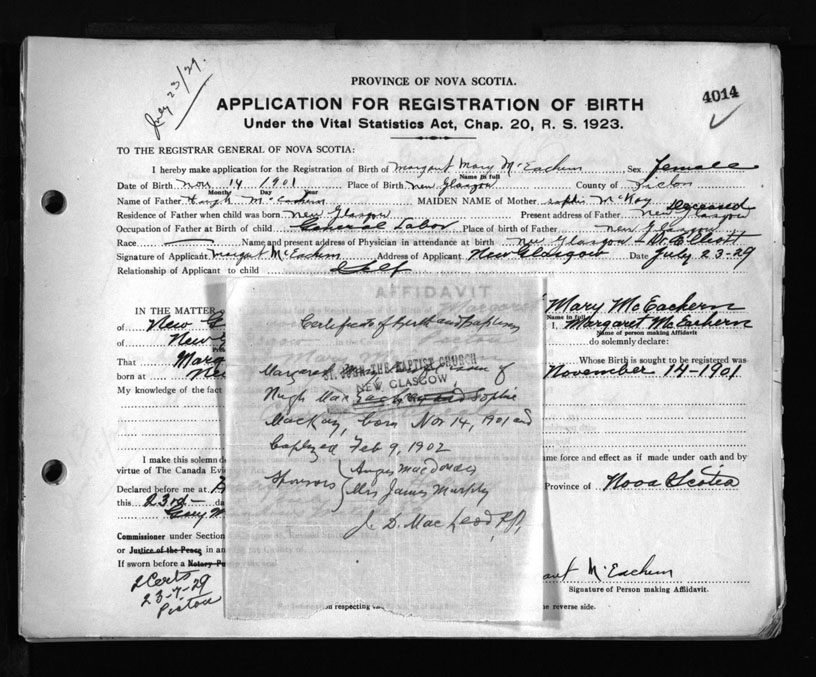 July 23/29.
PROVINCE OF NOVA SCOTIA.
4014
APPLICATION FOR REGISTRATION OF BIRTH
Under the Vital Statistics Act, Chap. 20, R. S. 1923.
TO THE REGISTRAR GENERAL OF NOVA SCOTIA:
I hereby make application for the Registration of Birth of Margaret Mary McEachern Sex Female
Name in full
Date of Birth Nov 14 1901 Place of Birth New Glasgow County of Pictou
Month Day Year
Name of Father Hugh McEachern MAIDEN NAME of Mother Sophie McKay
Deceased
Residence of Father when child was born New Glasgow Present address of Father New Glasgow
Occupation of Father at Birth of child General Labor Place of birth of Father New Glasgow
Race Name and present address of Physician in attendance at birth New Glasgow Dr. Elliott
Signature of Applicant Margaret McEachern Address of Applicant New Glasgow Date July 23-29
Relationship of Applicant to child Self
AFFIDAVIT
IN THE MATTER
Mary McEachern
Name in full
of New G
I, Margaret McEachern
Name of Person making Affidavit
of New G
do solemnly declare:
That Marg
Whose Birth is sought to be registered was
born at New
November 14-1901
My knowledge of the fact
Certificate of Birth and Baptism
Margaret
ST. JOHN THE BAPTIST CHURCH
NEW GLASGOW
of
Hugh Mac and Sophie
MacKay, born Nov 14, 1901 and
baptized Feb 9, 1902
Sponsors Angus MacDonald
Mrs James Murphy
J. D. MacLeod, P.P.
I make this solemn de
same force and effect as if made under oath and by
virtue of The Canada Evi
Declared before me at
Province of Nova Scotia
this 23rd da
Commissioner under Section
or Justice of the Peace in an
If sworn before a Notary Pu
2 Certs
23-7-29
Pictou
on respecting
e reverse side.
aret McEachern
Signature of Person making Affidavit.